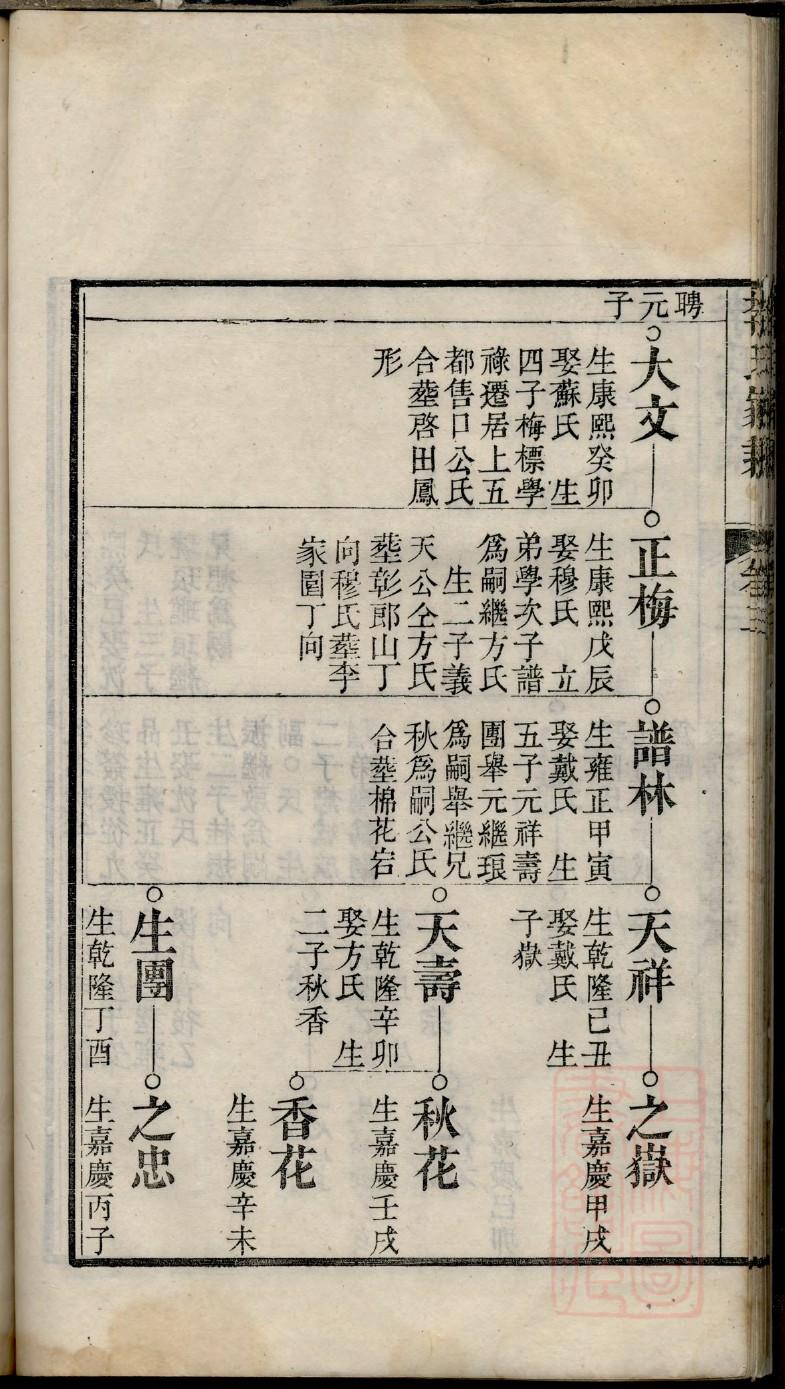 聘元子
大文
生康熙癸卯
娶蘇氏　生
四子梅標學
祿遷居上五
都售口公氏
合塟啓田鳳
形
正梅
生康熙戊辰
娶穆氏　立
弟學次子譜
爲嗣繼方氏
生二子義
天公仝方氏
塟彰郎山丁
向穆氏塟李
家園丁向
譜林
生雍正甲寅
娶戴氏　生
五子元祥壽
團舉元繼琅
爲嗣舉繼兄
秋爲嗣公氏
合塟棉花宕
天祥
生乾隆己丑
娶戴氏　生
子嶽
天壽
生乾隆辛卯
娶方氏　生
二子秋香
生團
生乾隆丁酉
之嶽
生嘉慶甲戌
秋花
生嘉慶壬戌
香花
生嘉慶辛未
之忠
生嘉慶丙子